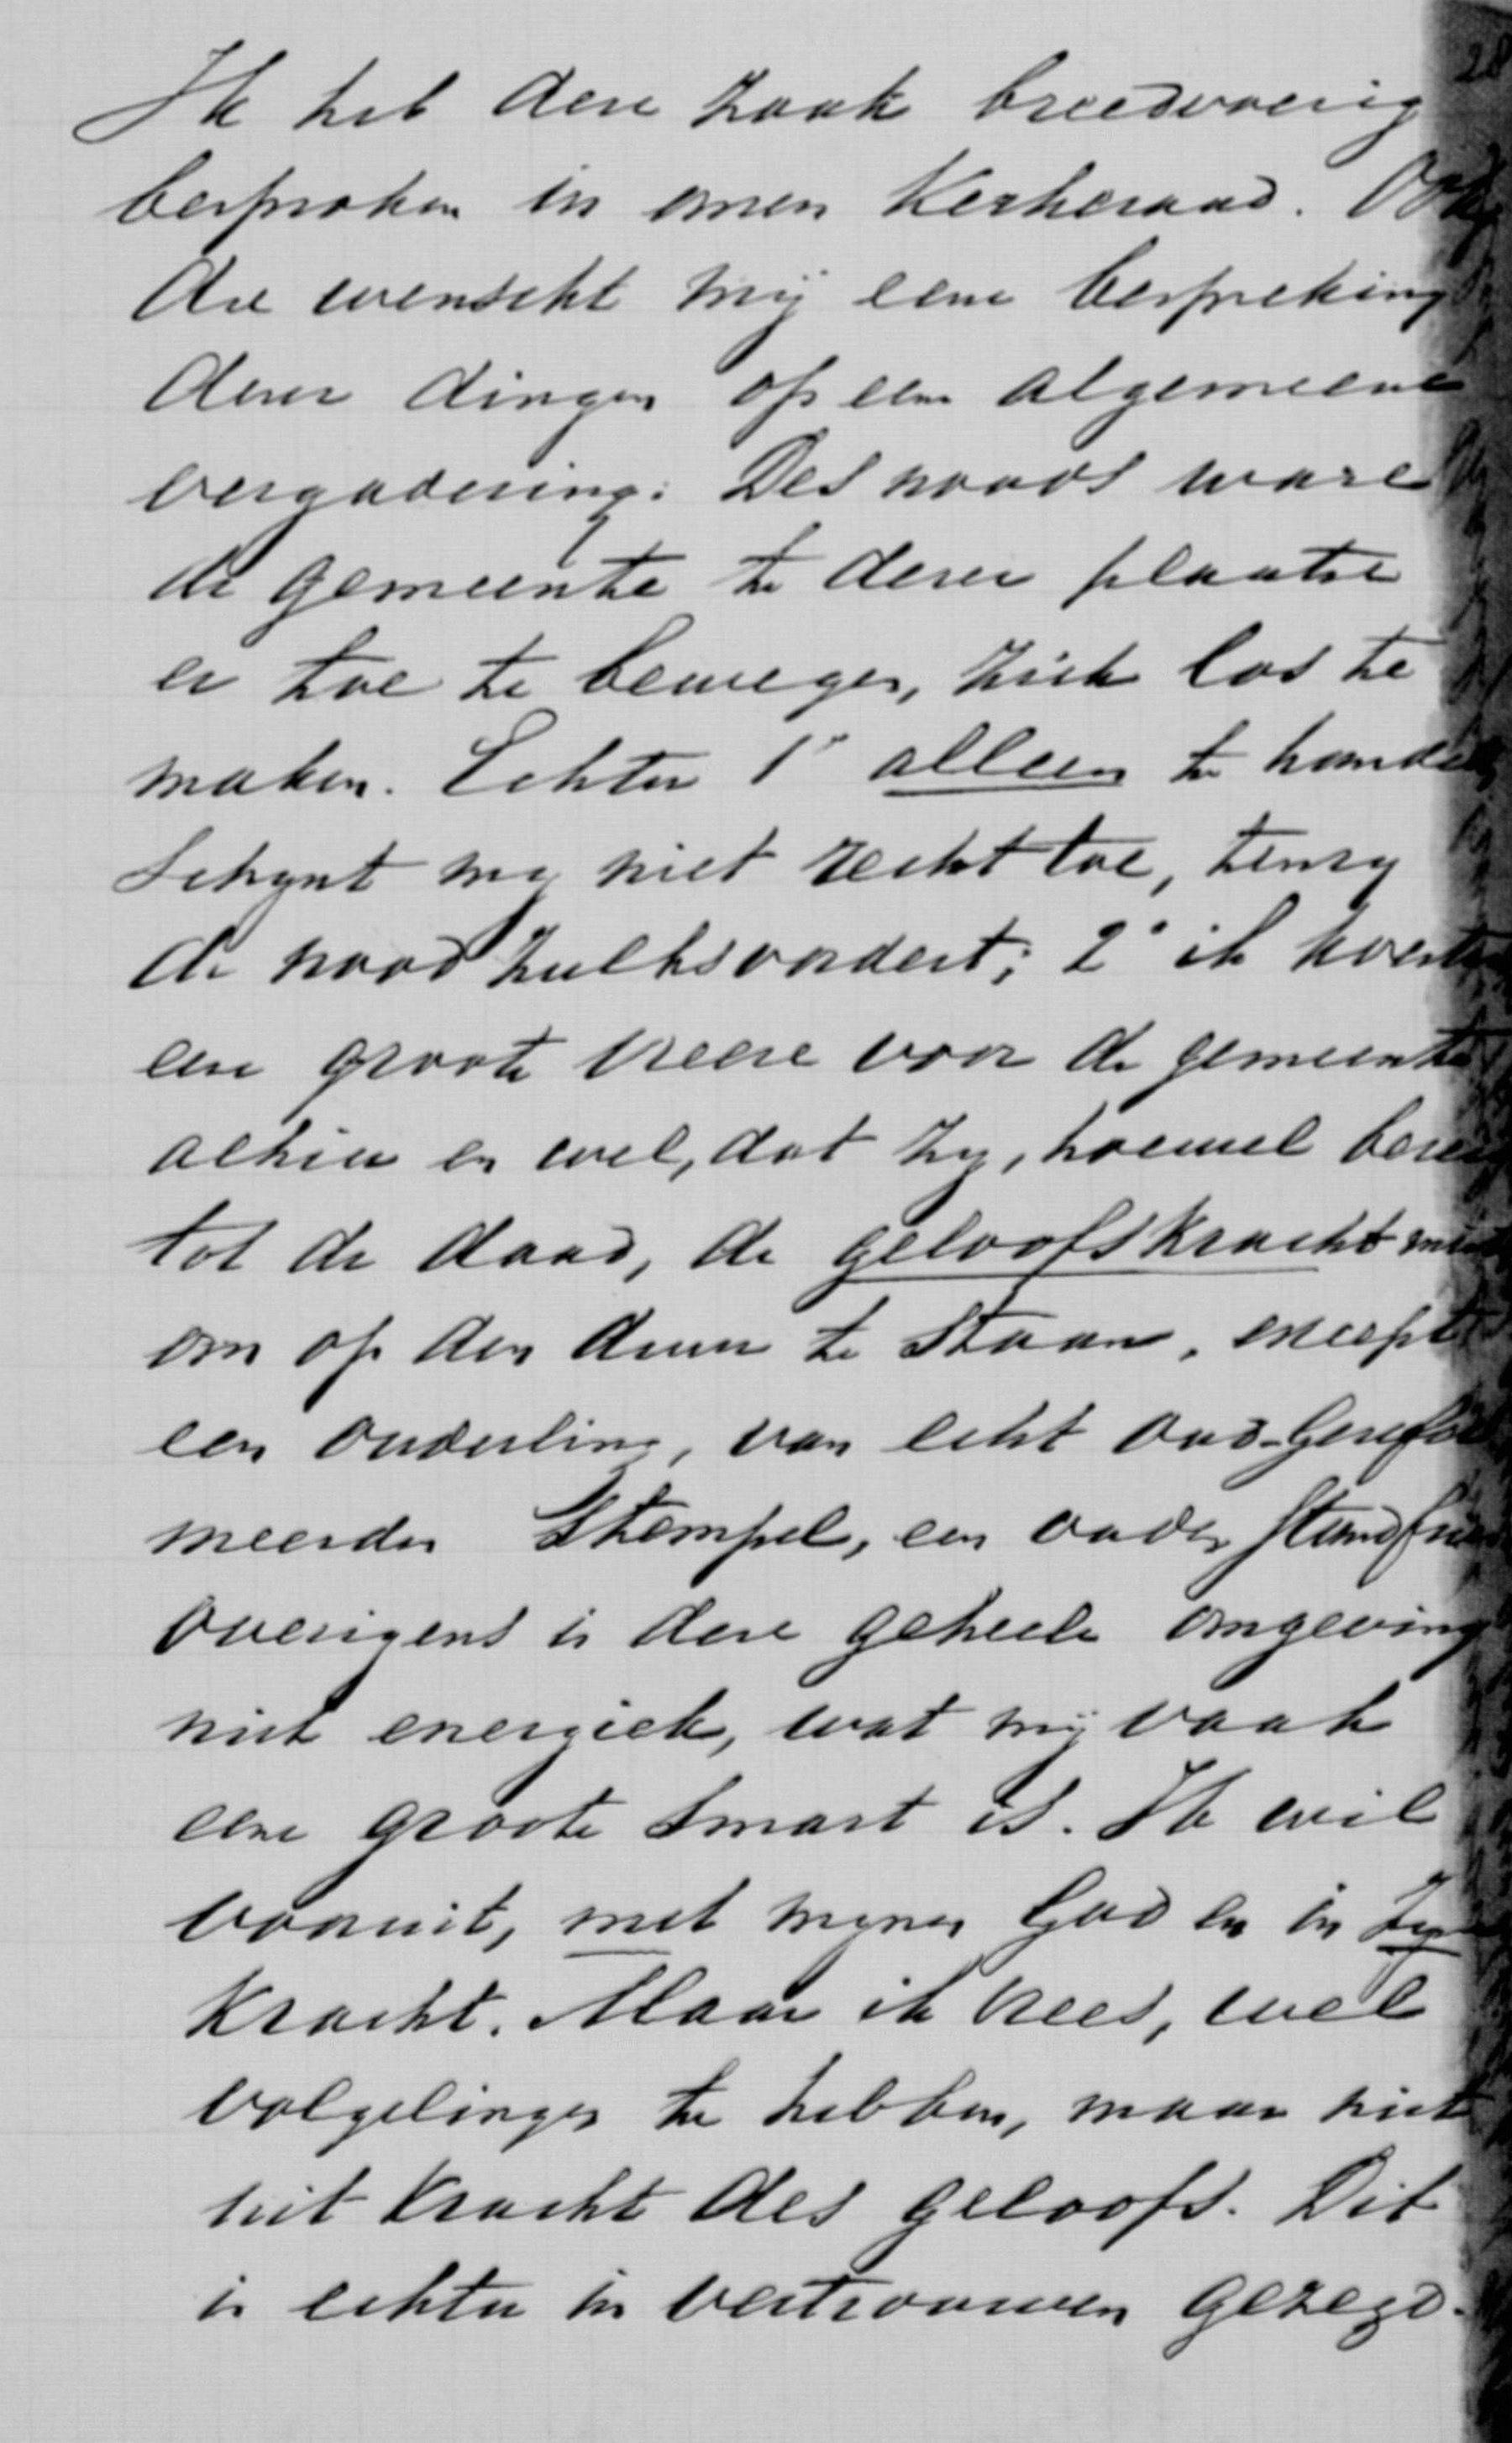 Ik heb deze zaak breedvoerig
besproken in onzen Kerkeraad. Ook
die wenscht mij eene bespreking
dezer dingen op eene algemeene
vergadering. Des noods ware
de gemeente te dezer plaatse
er toe te bewegen, zich los te
maken. Echter 1° alleen te
schynt my niet recht toe, tenzy
de nood zulks vordert; 2° ik
eene groote vreeze voor de gemeente
alhier en wel, dat zy, hoewel
tot de daad, de geloofskracht
om op den duur te staan,
een ouderling, van echt oud-Gerefor
meerden Stempel, een ouden
Overigens is deze geheele omgeving
niet energiek, wat mij vaak
eene groote smart is. Ik wil
vooruit, met mynen God en in
Kracht. Maar ik vrees, wel
volgelingen te hebben, maar niet
uit kracht des geloofs. Dit
is echter in vertrouwen gezegd.